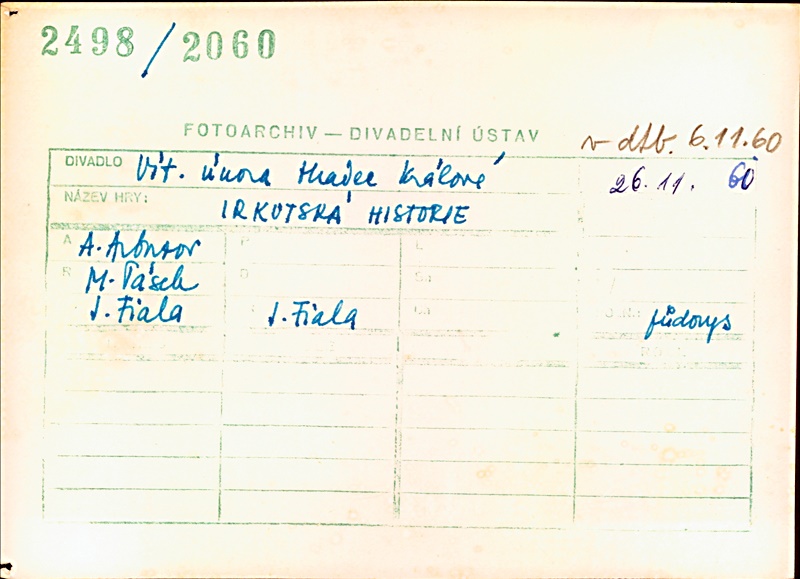 2498/2060
FOTOARCHIV — DIVADELNÍ ÚSTAV
v dtb. 6.11.60
DIVADLO Vít. února Hradec Králové
26.11. 60
NÁZEV HRY: IRKUTSKÁ HISTORIE
A A. Arbuzov P L
R M. Pásek D
J. Fiala J. Fiala půdorys